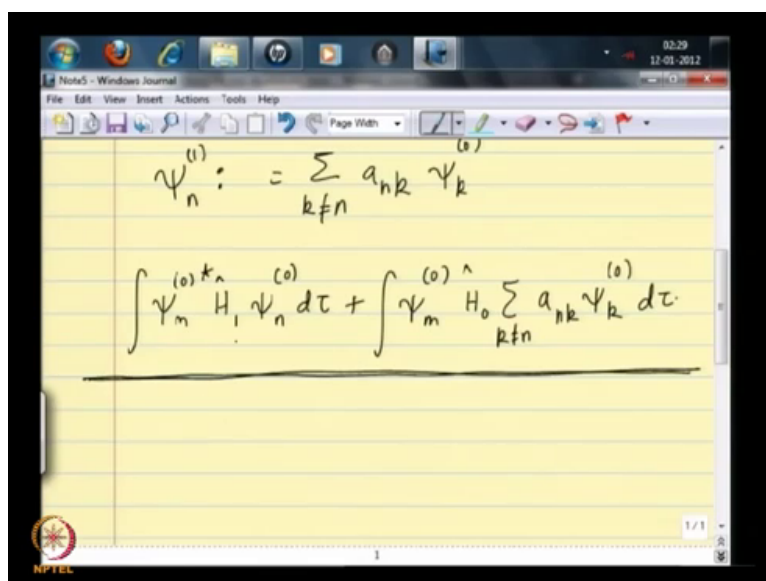 02:29
12-01-2012
Note5 - Windows Journal
File Edit View Insert Actions Tools Help
Page Width
ψ_n^{(1)} : = Σ_{k≠n} a_{nk} ψ_k^{(0)}
∫ ψ_m^{(0)*} Ĥ_1 ψ_n^{(0)} dτ + ∫ ψ_m^{(0)} Ĥ_0 Σ_{k≠n} a_{nk} ψ_k^{(0)} dτ.
1/1
1
NPTEL